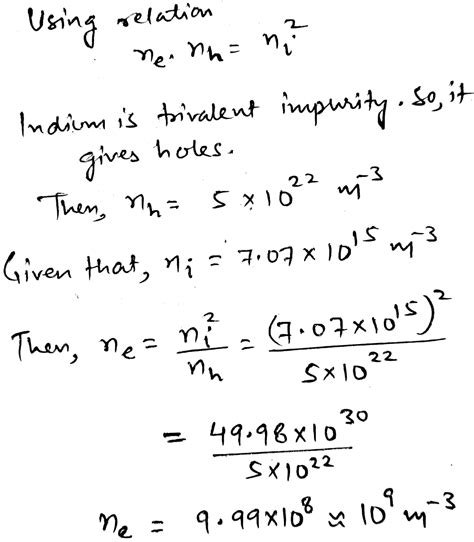 Using relation
nₑ. nₕ = nᵢ²
Indium is trivalent impurity. So, it
gives holes.
Then, nₕ = 5 × 10²² m⁻³
Given that, nᵢ = 7.07 × 10¹⁵ m⁻³
Then, nₑ = nᵢ²/nₕ = (7.07×10¹⁵)²/5×10²²
= 49.98×10³⁰/5×10²²
nₑ = 9.99×10⁸ ≈ 10⁹ m⁻³